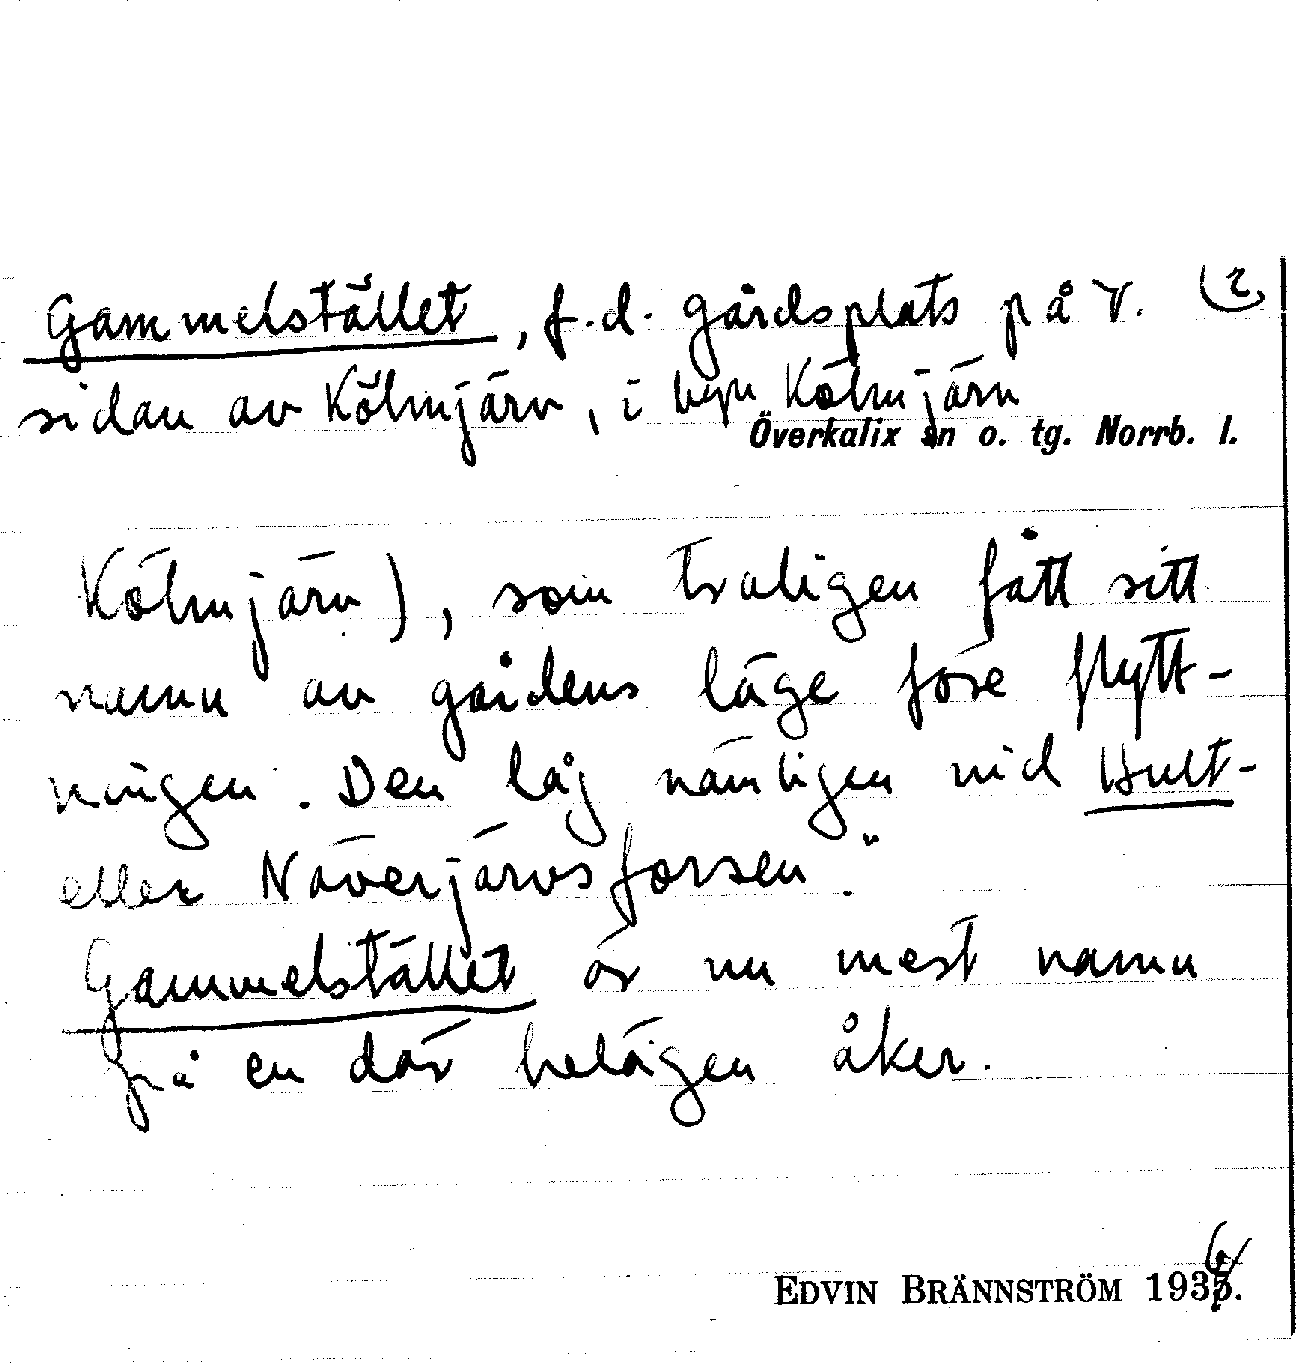 Gammelstället, f.d. gårdsplats på V. (2)
sidan av Kölmjärv, i byn Kölmjärv
Överkalix sn o. tg. Norrb. l.
Kölmjärv), som troligen fått sitt
namn av gårdens läge före flytt-
ningen. Den låg nämligen vid Bult-
eller Näverjärvsforsen."
Gammelstället är nu mest namn
på en där belägen åker.
EDVIN BRÄNNSTRÖM 1936.